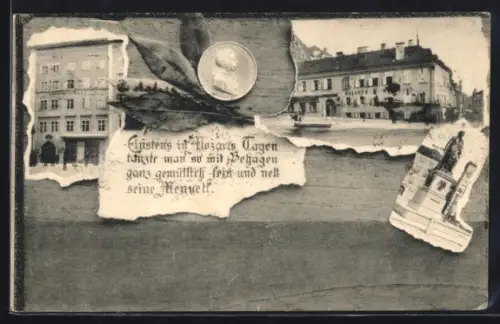 Einstens in Mozarts Tagen
tanzte man so mit Behagen
ganz gemütlich fein und nett
seine Menuett.